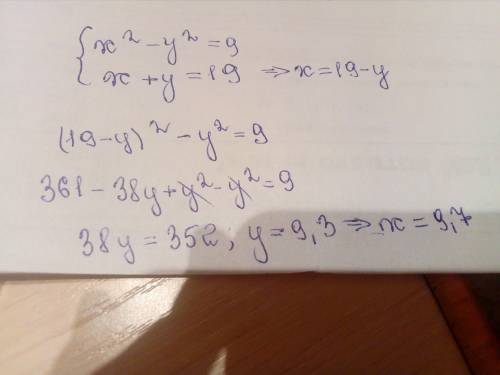 { x² - y² = 9
x + y = 19 ⇒ x = 19 - y
(19 - y)² - y² = 9
361 - 38y + y² - y² = 9
38y = 352; y = 9,3 ⇒ x = 9,7